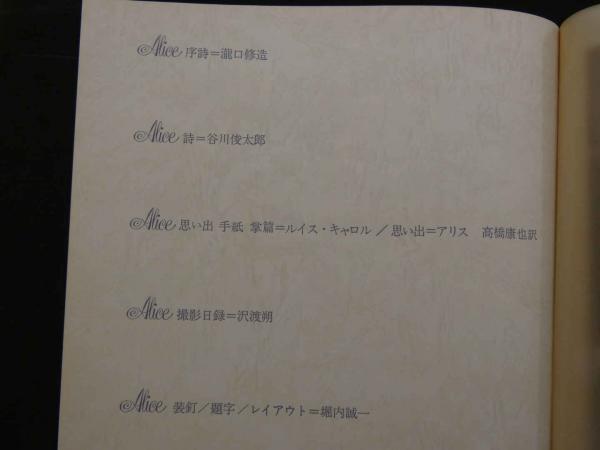 Alice 序詩=瀧口修造
Alice 詩=谷川俊太郎
Alice 思い出 手紙 掌篇=ルイス・キャロル／思い出=アリス　高橋康也訳
Alice 撮影日録=沢渡朔
Alice 装釘／題字／レイアウト=堀内誠一